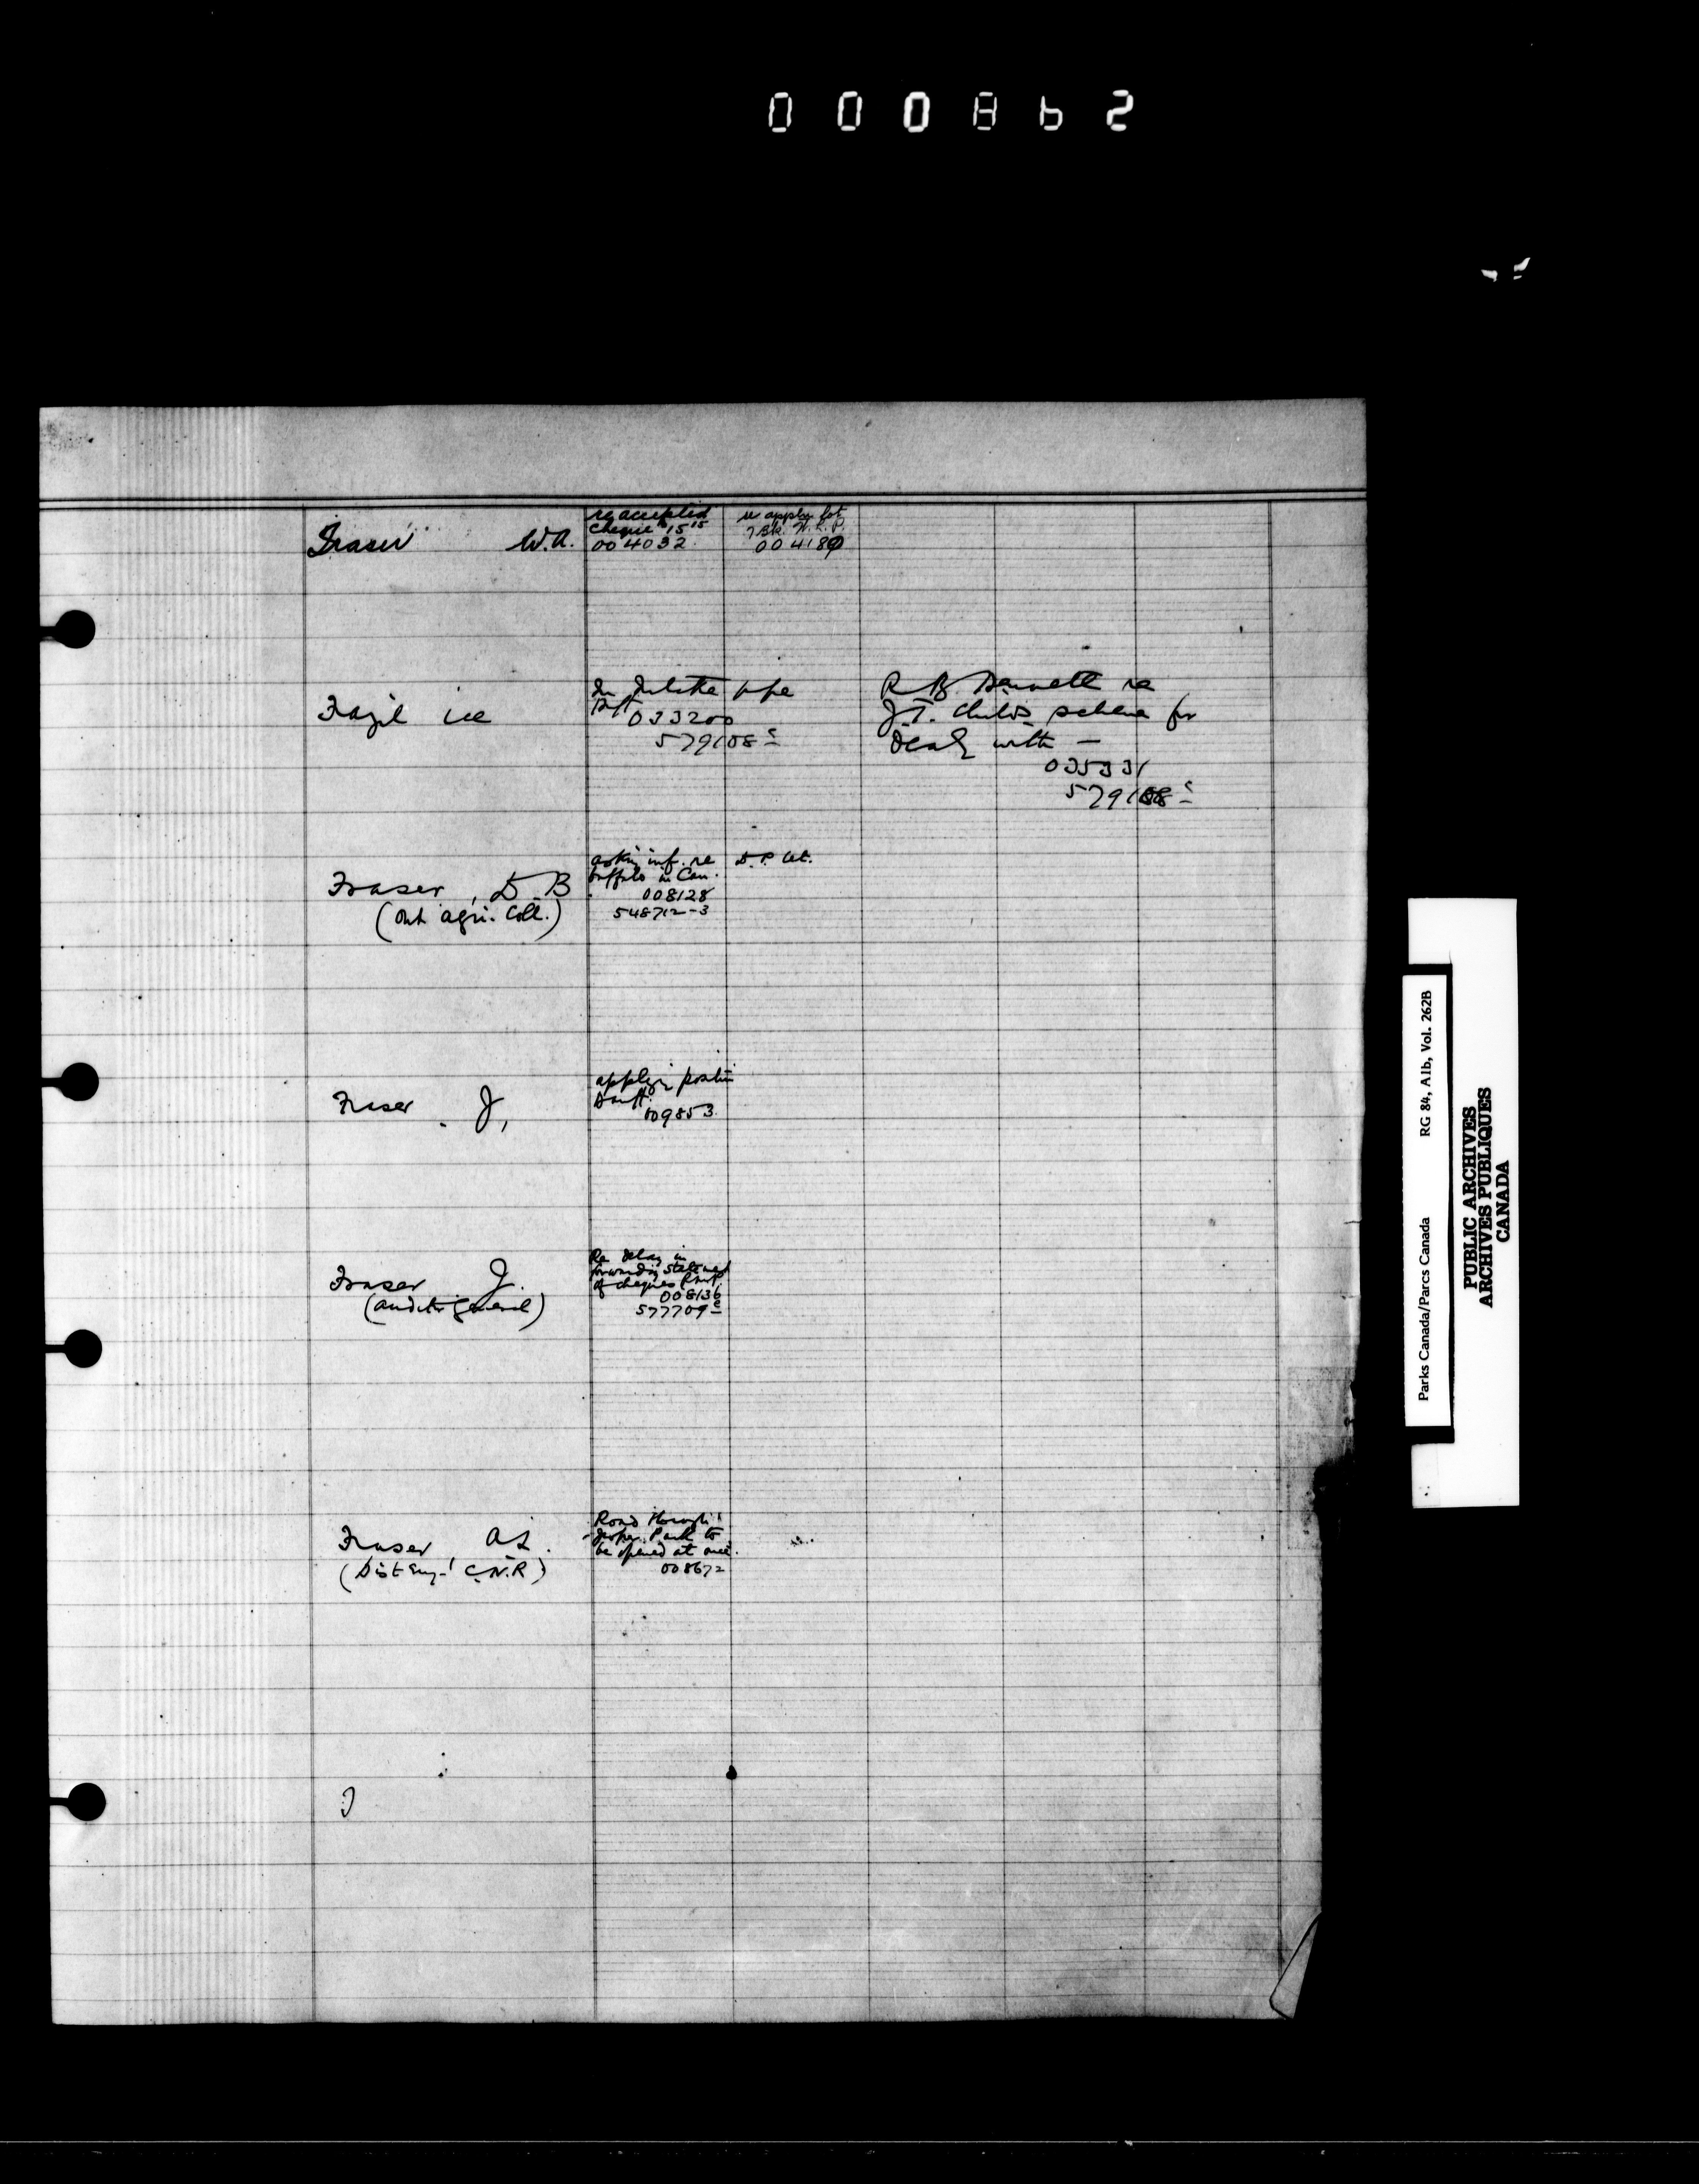 000862
Fraser W.A.
re accepted
cheque 15 15
004032
re appln lot
7 Bk. W.L.P.
004180
Frazil ice
In Intake pipe
Banff
033200
579108 c
R B Bennett re
J.T. Childs scheme for
Dealg with —
035331
579108 c
Fraser, D. B
(Ont agri. Coll.)
asking inf. re
buffalo in Can.
008128
548712-3
Fraser J,
applyg position
Banff.
009853
Fraser J.
(auditor general)
Re delay in
forwarding statement
of cheques
008136
577709 c
Fraser A L.
(Dist Eng- C.N.R)
Road through
Jasper Park to
be opened at once.
008672
Parks Canada/Parcs Canada RG 84, A1b, Vol. 262B
PUBLIC ARCHIVES
ARCHIVES PUBLIQUES
CANADA